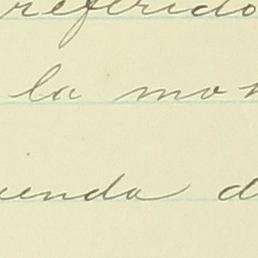 referido
la mon
uenda d